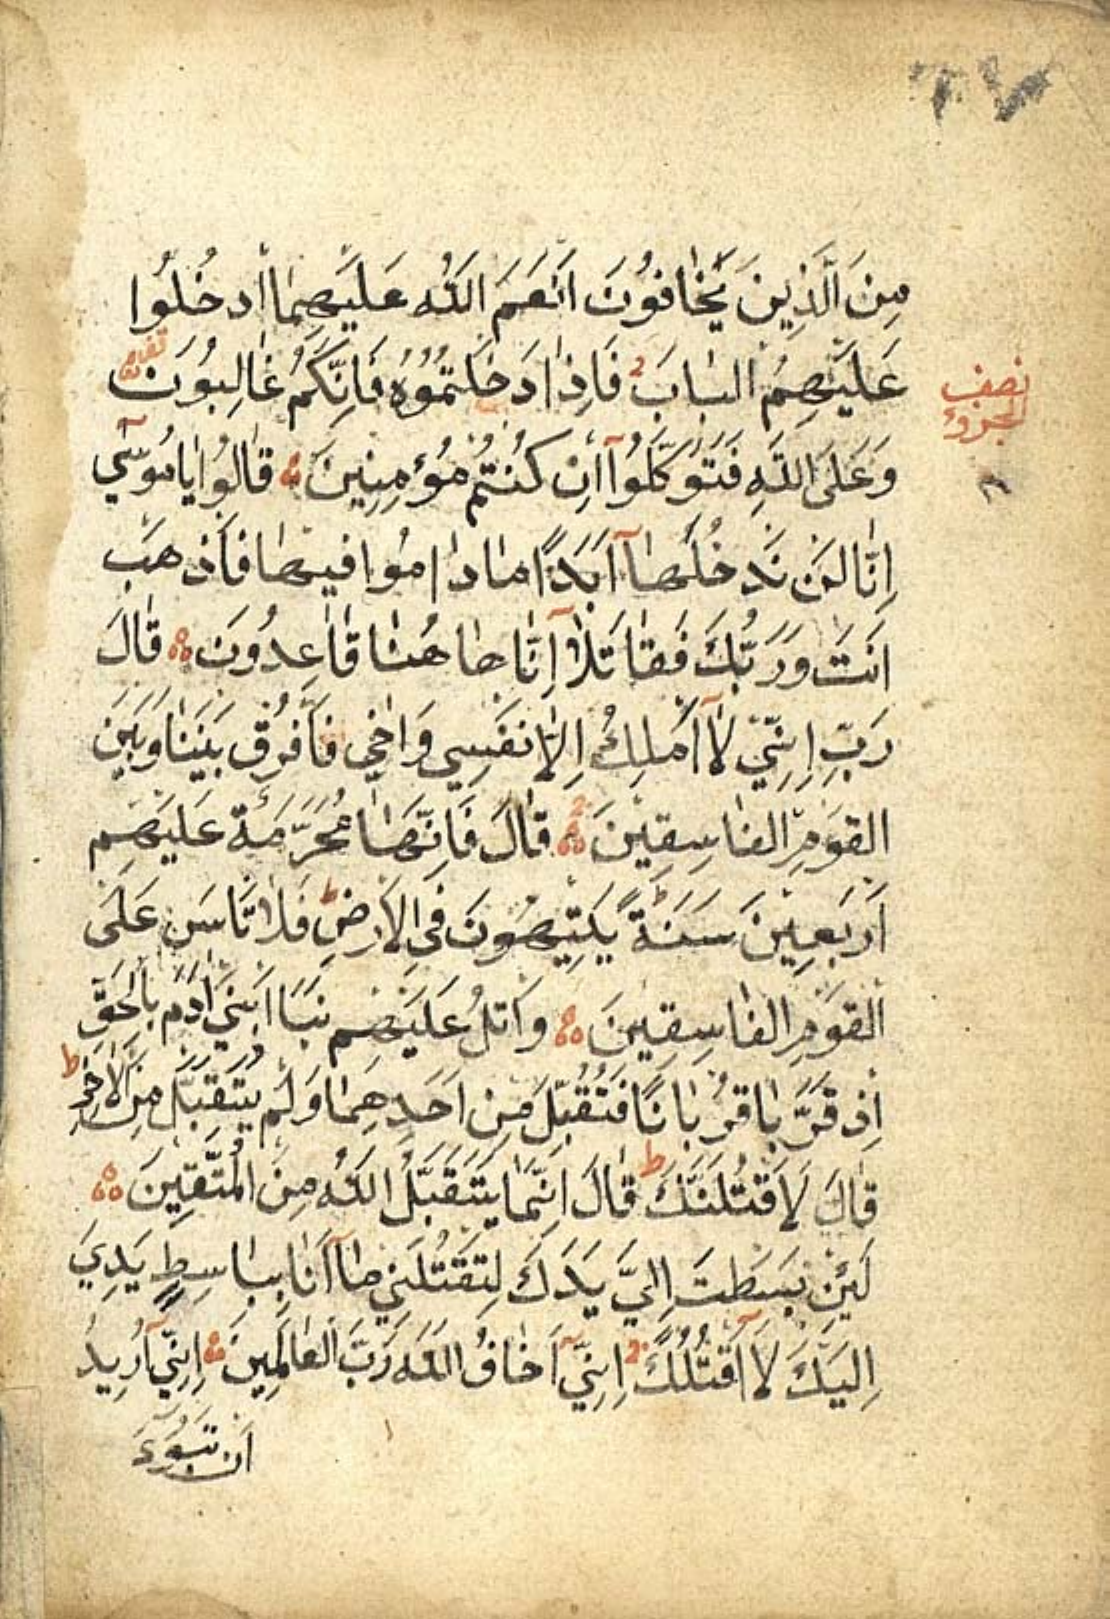 ٢٧
مِنَ الَّذِينَ يَخَافُونَ اَنْعَمَ اللّٰهُ عَلَيْهِمَا ادْخُلُوا
عَلَيْهِمُ الْبَابَ فَاِذَا دَخَلْتُمُوهُ فَاِنَّكُمْ غَالِبُونَ
نصف
الجزؤ
وَعَلَى اللّٰهِ فَتَوَكَّلُوا اِنْ كُنْتُمْ مُؤْمِنِينَ قَالُوا يَا مُوسٰى
اِنَّا لَنْ نَدْخُلَهَا اَبَدًا مَا دَامُوا فِيهَا فَاذْهَبْ
اَنْتَ وَرَبُّكَ فَقَاتَلَا اِنَّا هَاهُنَا قَاعِدُونَ قَالَ
رَبِّ اِنِّي لَا اَمْلِكُ اِلَّا نَفْسِي وَاَخِي فَافْرُقْ بَيْنَنَا وَبَيْنَ
الْقَوْمِ الْفَاسِقِينَ قَالَ فَاِنَّهَا مُحَرَّمَةٌ عَلَيْهِمْ
اَرْبَعِينَ سَنَةً يَتِيهُونَ فِي الْاَرْضِ فَلَا تَاْسَ عَلَى
الْقَوْمِ الْفَاسِقِينَ وَاتْلُ عَلَيْهِمْ نَبَاَ ابْنَيْ اٰدَمَ بِالْحَقِّ
اِذْ قَرَّبَا قُرْبَانًا فَتُقُبِّلَ مِنْ اَحَدِهِمَا وَلَمْ يُتَقَبَّلْ مِنَ الْاٰخَرِ
قَالَ لَاَقْتُلَنَّكَ قَالَ اِنَّمَا يَتَقَبَّلُ اللّٰهُ مِنَ الْمُتَّقِينَ
لَئِنْ بَسَطْتَ اِلَيَّ يَدَكَ لِتَقْتُلَنِي مَا اَنَا بِبَاسِطٍ يَدِيَ
اِلَيْكَ لَا اَقْتُلُكَ اِنِّي اَخَافُ اللّٰهَ رَبَّ الْعَالَمِينَ اِنِّي اُرِيدُ
اَنْ تَبُوءَ